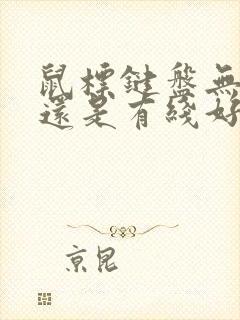 鼠標鍵盤無
還是有綫好
京昆